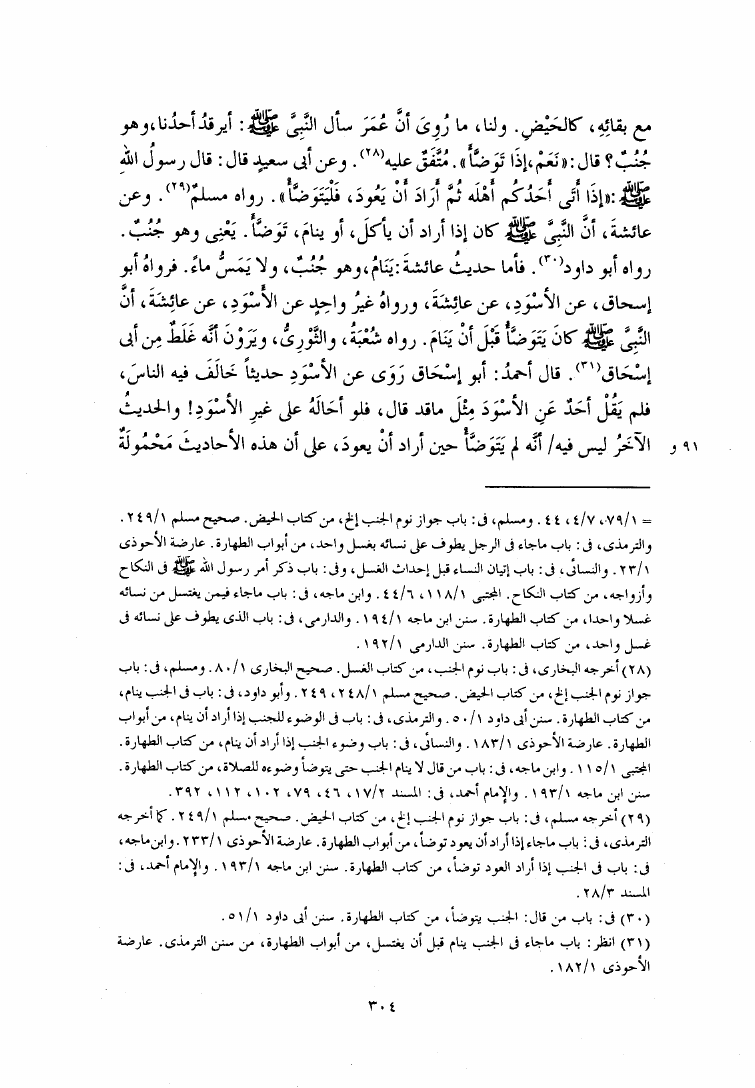 مع بقائِهِ، كالحَيْضِ. ولنا، ما رُوِىَ أنَّ عُمَرَ سأل النَّبِىَّ ﷺ: أيرقدُ أحدُنا،وهو
جُنُبٌ؟ قال:«نَعَمْ،إذا تَوَضَّأَ». مُتَّفَقٌ عليه(٢٨). وعن أبى سعيدٍ قال: قال رسولُ اللهِ
ﷺ:«إذَا أَتَى أَحَدُكُم أَهْلَه ثُمَّ أَرَادَ أَنْ يَعُودَ، فَلْيَتَوَضَّأْ». رواه مسلمٌ(٢٩). وعن
عائشةَ، أنَّ النَّبِىَّ ﷺ كان إذا أراد أن يأكلَ، أو ينامَ، تَوَضَّأَ. يَعْنِى وهو جُنُبٌ.
رواه أبو داود(٣٠). فأما حديثُ عائشةَ:يَنَامُ،وهو جُنُبٌ، ولا يَمَسُّ ماءً. فرواهُ أبو
إسحاق، عن الأسْوَدِ، عن عائِشَةَ، ورواهُ غيرُ واحِدٍ عن الأَسْوَدِ، عن عائِشَةَ، أنَّ
النَّبِىَّ ﷺ كانَ يَتَوَضَّأُ قَبْلَ أنْ يَنَامَ. رواه شُعْبَةُ، والثَّوْرِىُّ، ويَرَوْنَ أنَّه غَلَطٌ مِن أبى
إسْحَاق(٣١). قال أحمدُ: أبو إسْحَاق رَوَى عن الأسْوَدِ حديثاً خَالَفَ فيه الناسَ،
فلم يَقُلْ أحَدٌ عَنِ الأسْوَدَ مِثْلَ ماقد قال، فلو أحَالَهُ على غيرِ الأسْوَدِ! والحديثُ
٩١ و الآخَرُ ليس فيه/ أنَّه لم يَتَوَضَّأْ حين أراد أنْ يعودَ، على أن هذه الأحاديثَ مَحْمُولَةٌ
= ٧٩/١، ٤/٧، ٤٤. ومسلم، فى: باب جواز نوم الجنب إلخ، من كتاب الحيض. صحيح مسلم ٢٤٩/١.
والترمذى، فى: باب ماجاء فى الرجل يطوف على نسائه بغسل واحد، من أبواب الطهارة. عارضة الأحوذى
٢٣/١. والنسائى، فى: باب إتيان النساء قبل إحداث الغسل، وفى: باب ذكر أمر رسول الله ﷺ فى النكاح
وأزواجه، من كتاب النكاح. المجتبى ١١٨/١، ٤٤/٦. وابن ماجه، فى: باب ماجاء فيمن يغتسل من نسائه
غسلا واحدا، من كتاب الطهارة. سنن ابن ماجه ١٩٤/١. والدارمى، فى: باب الذى يطوف على نسائه فى
غسل واحد، من كتاب الطهارة. سنن الدارمى ١٩٢/١.
(٢٨) أخرجه البخارى، فى: باب نوم الجنب، من كتاب الغسل. صحيح البخارى ٨٠/١. ومسلم، فى: باب
جواز نوم الجنب إلخ، من كتاب الحيض. صحيح مسلم ٢٤٨/١، ٢٤٩. وأبو داود، فى: باب فى الجنب ينام،
من كتاب الطهارة. سنن أبى داود ٥٠/١. والترمذى، فى: باب فى الوضوء للجنب إذا أراد أن ينام، من أبواب
الطهارة. عارضة الأحوذى ١٨٣/١. والنسائى، فى: باب وضوء الجنب إذا أراد أن ينام، من كتاب الطهارة.
المجتبى ١١٥/١. وابن ماجه، فى: باب من قال لا ينام الجنب حتى يتوضأ وضوءه للصلاة، من كتاب الطهارة.
سنن ابن ماجه ١٩٣/١. والإمام أحمد، فى: المسند ١٧/٢، ٤٦، ٧٩، ١٠٢، ١١٢، ٣٩٢.
(٢٩) أخرجه مسلم، فى: باب جواز نوم الجنب إلخ، من كتاب الحيض. صحيح مسلم ٢٤٩/١. كما أخرجه
الترمذى، فى: باب ماجاء إذا أراد أن يعود توضأ، من أبواب الطهارة. عارضة الأحوذى ٢٣٣/١. وابن ماجه،
فى: باب فى الجنب إذا أراد العود توضأ، من كتاب الطهارة. سنن ابن ماجه ١٩٣/١. والإمام أحمد، فى:
المسند ٢٨/٣.
(٣٠) فى: باب من قال: الجنب يتوضأ، من كتاب الطهارة. سنن أبى داود ٥١/١.
(٣١) انظر: باب ماجاء فى الجنب ينام قبل أن يغتسل، من أبواب الطهارة، من سنن الترمذى. عارضة
الأحوذى ١٨٢/١.
٣٠٤